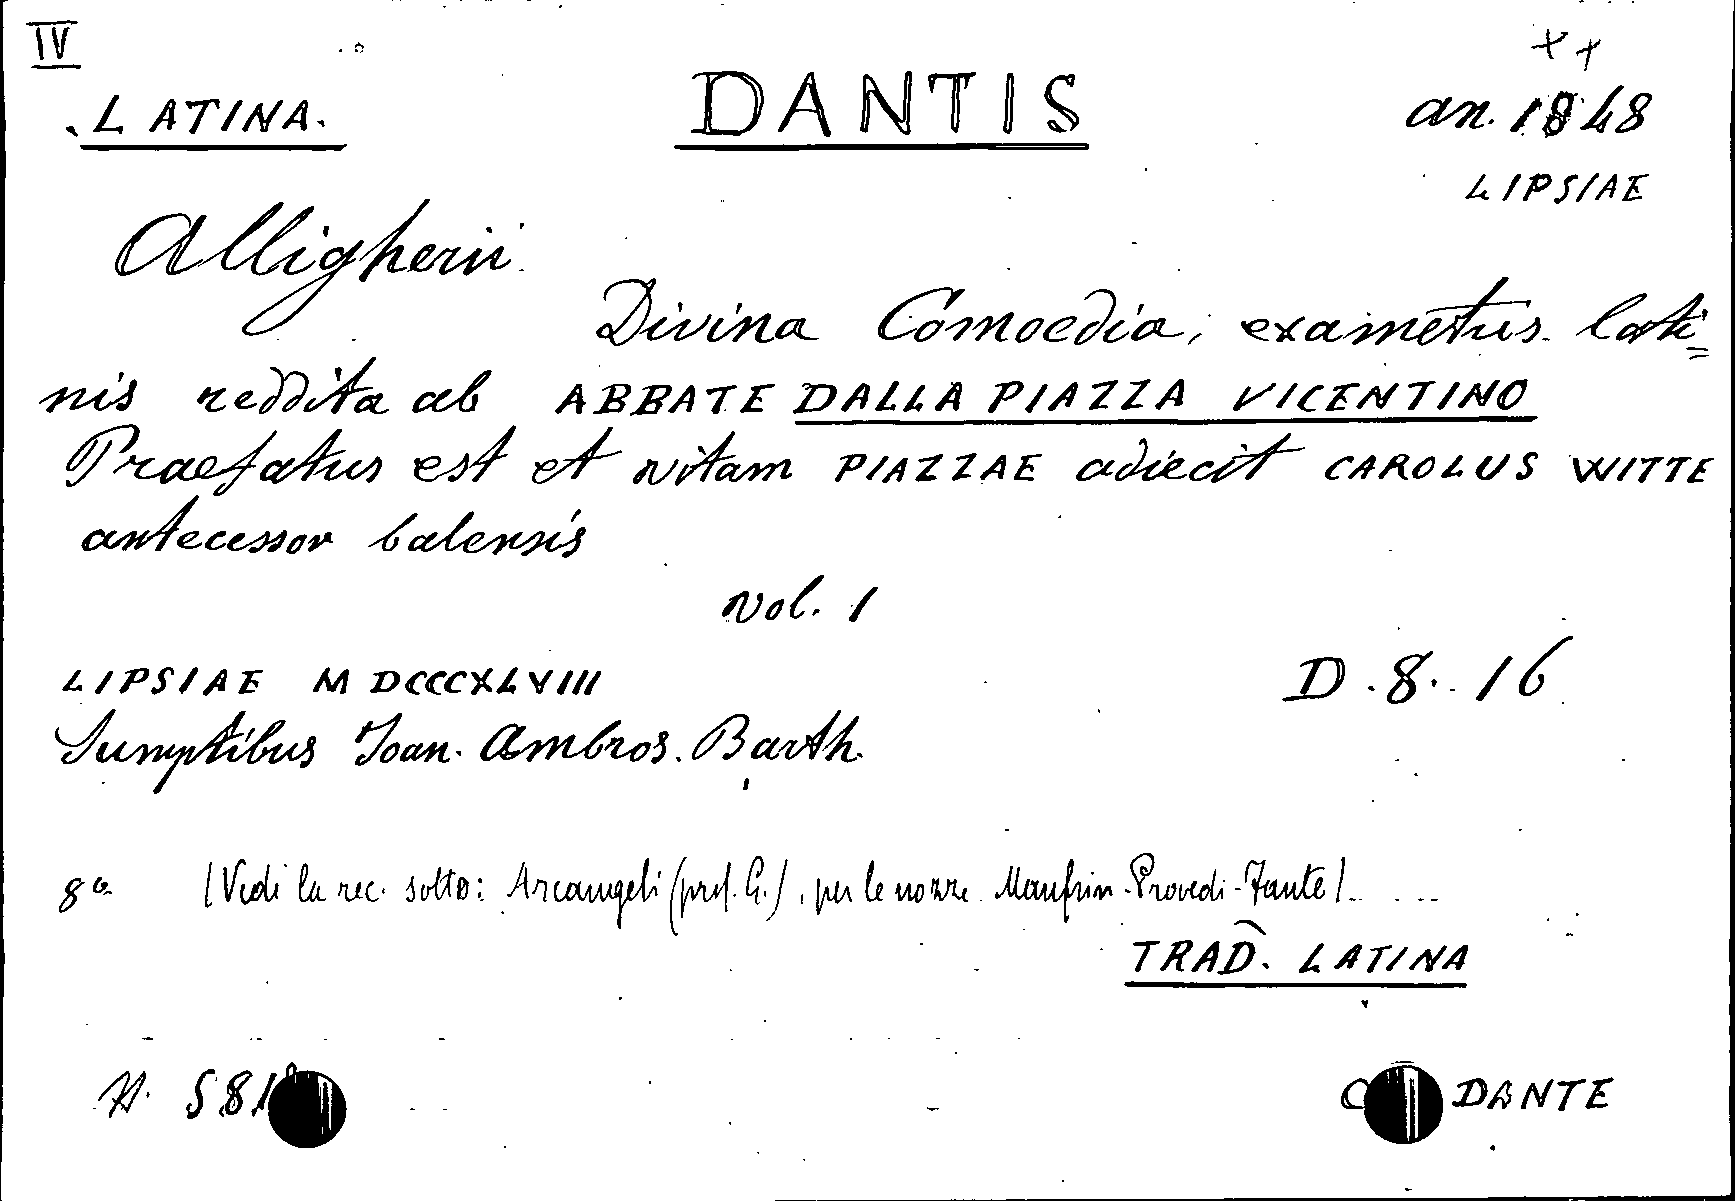 IV
++
LATINA.
DANTIS
an. 1848
LIPSIAE
Alligherii
Divina Comoedia, exametris lati=
nis reddita ab ABBATE DALLA PIAZZA VICENTINO
Praefatus est et vitam PIAZZAE adiecit CAROLUS WITTE
antecessor halensis
vol. 1
LIPSIAE MDCCCXLVIII
D.8.16
Sumptibus Ioan. Ambros. Barth.
8º (Vedi la rec. sotto: Arcangeli (prof. G.), per le nozze Manfrin-Provedi-Fante)
TRAD. LATINA
N. 581
C DANTE